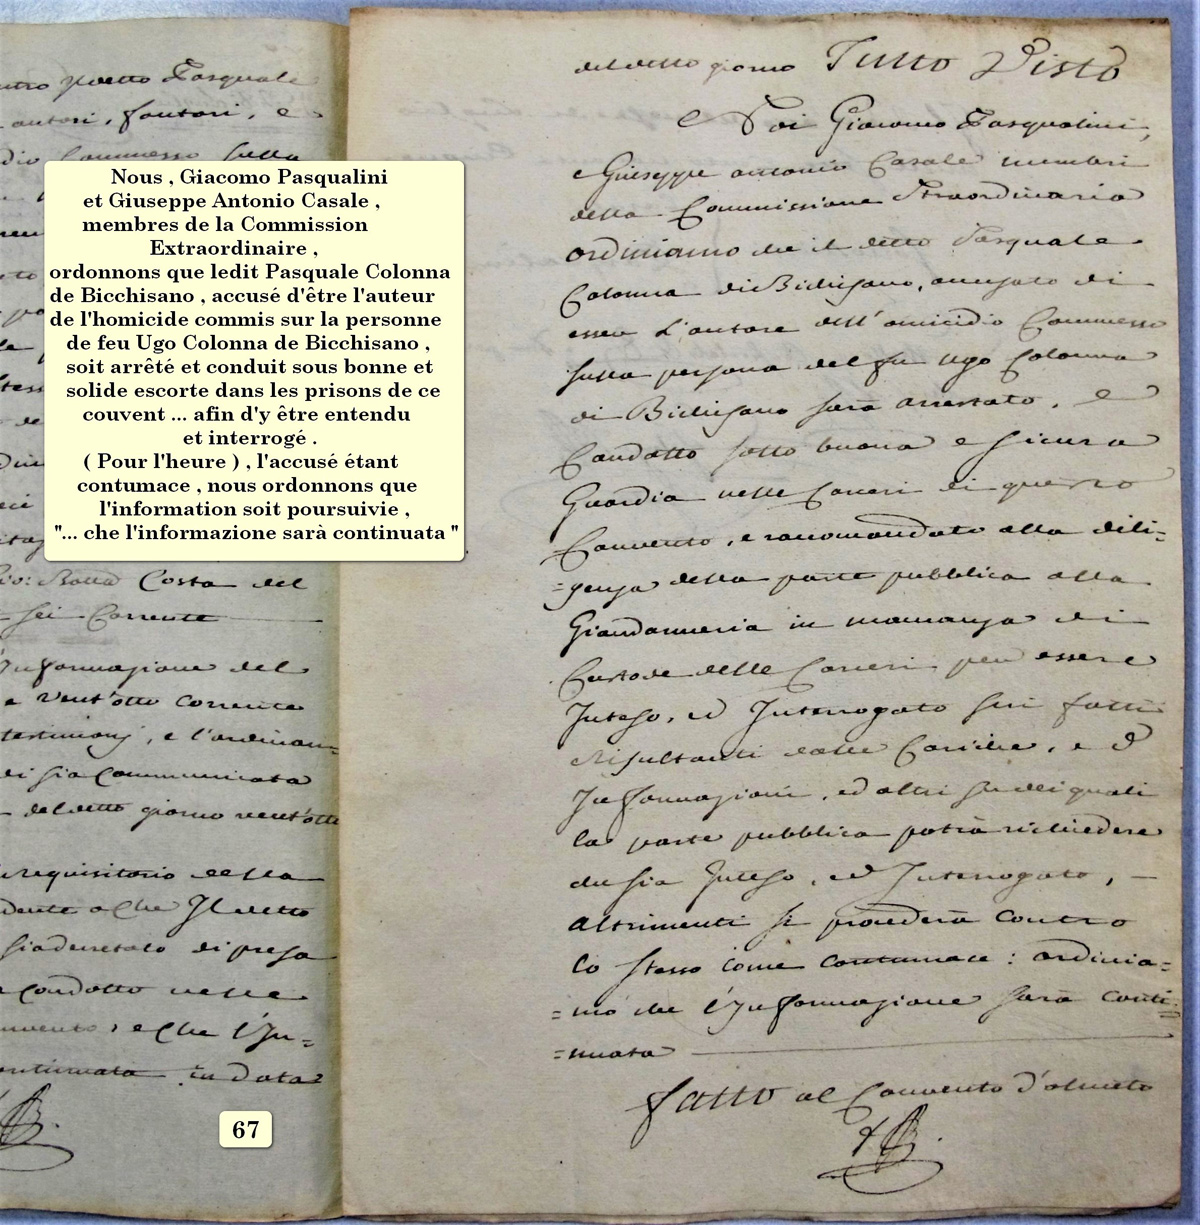 Pasquale
autori, fautori, e
Commesso sulla
Costa del
sei Corrente
Informazione del
e vent'otto corrente
testimonj, e l'ordinan=
sia Communicata
del detto giorno vent'otto
requisitorio della
a che Il detto
sia decretato di presa
condotto nelle
e che l'In=
in data
Nous , Giacomo Pasqualini
et Giuseppe Antonio Casale ,
membres de la Commission
Extraordinaire ,
ordonnons que ledit Pasquale Colonna
de Bicchisano , accusé d'être l'auteur
de l'homicide commis sur la personne
de feu Ugo Colonna de Bicchisano ,
soit arrêté et conduit sous bonne et
solide escorte dans les prisons de ce
couvent ... afin d'y être entendu
et interrogé .
( Pour l'heure ) , l'accusé étant
contumace , nous ordonnons que
l'information soit poursuivie ,
"... che l'informazione sarà continuata "
67
del detto giorno Tutto Visto
e Noi Giacomo Pasqualini,
e Giuseppe antonio Casale membri
della Commissione Straordinaria
ordiniamo che il detto Pasquale
Colonna di Bichisano, accusato di
essere L'autore dell'omicidio Commesso
sulla persona del fu Ugo Colonna
di Bichisano sarà arrestato, e
Condotto sotto buona e sicura
Guardia nelle Carceri di questo
Convento, e racomandato alla dili=
=genza della parte pubblica alla
Giandarmeria in mancanza di
Custode delle Carceri per essere
Inteso, ed Interrogato sui fatti
Risultanti dalle Cariche, e d
Informazioni, ed altri su dei quali
la parte pubblica potrà richiedere
che sia Inteso, ed Interrogato,
altrimenti si procederà Contro
lo stesso come Contumace: ordinia=
=mo che l'Informazione sarà conti=
=nuata
fatto al Convento d'olmeto